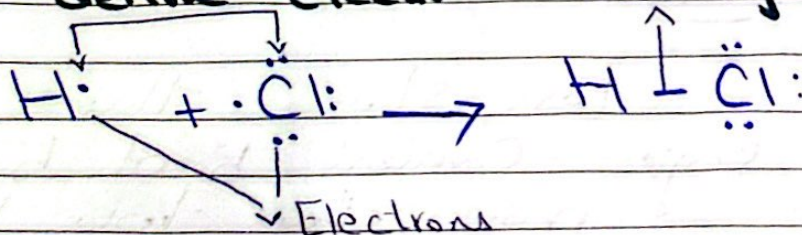 H· + ·C̈l: → H – C̈l:
Electrons